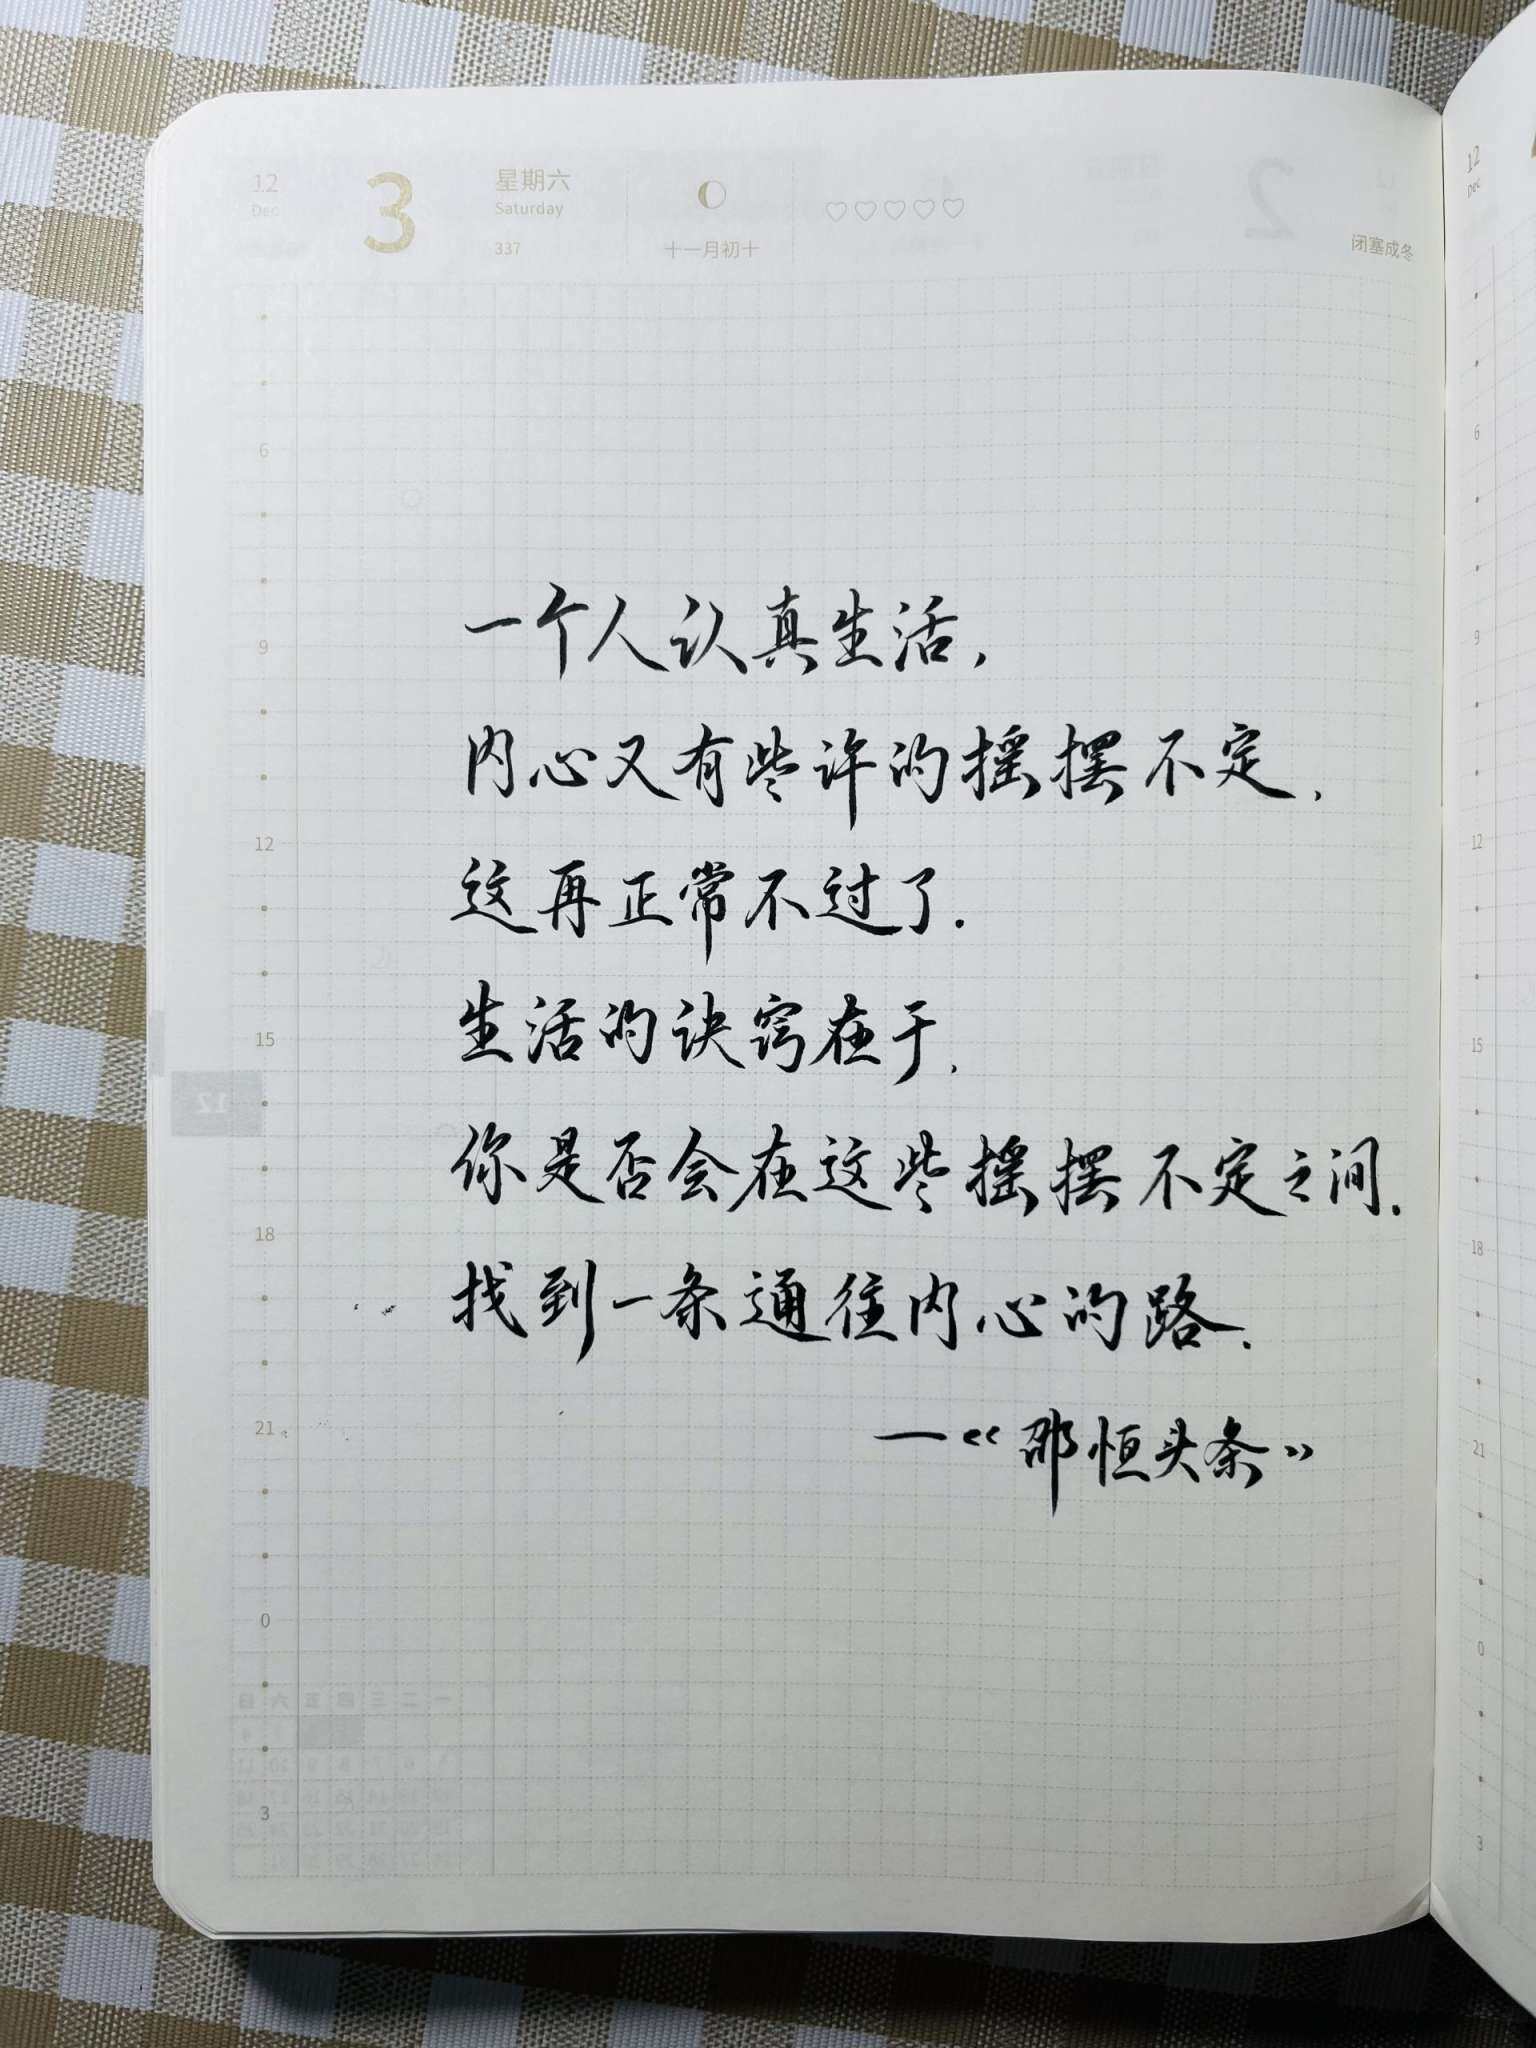 12
Dec
3
星期六
Saturday
337
十一月初十
闭塞成冬
6
9
12
15
18
21
0
3
一个人认真生活,
内心又有些许的摇摆不定,
这再正常不过了.
生活的诀窍在于,
你是否会在这些摇摆不定之间.
找到一条通往内心的路.
—《邵恒头条》
12
Dec
6
9
12
15
18
21
0
3